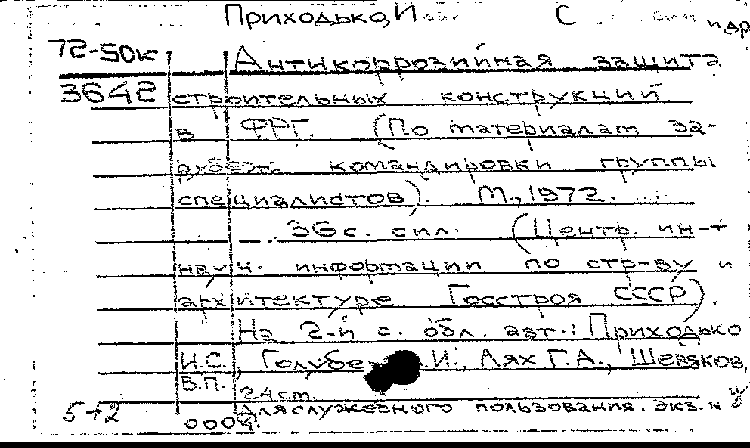 Приходько, И С и др
72-50к Антикоррозийная защита
3642 строительных конструкций
в ФРГ. (По материалам за-
рубеж. командировки группы
специалистов). М., 1972.
36 с. с ил. (Центр. ин-т
науч. информации по стр-ву и
архитектуре Госстроя СССР).
На 2-й с. обл. авт.: Приходько
И.С., И., Лях Г.А., Шевяков,
В.П. 24 ст.
5+2 Для служебного пользования. экз. №
000